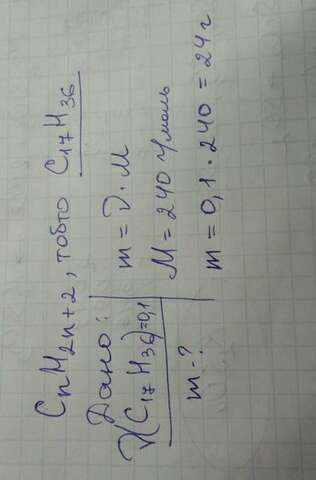 CnH2n+2, тобто C17H36
Дано:
ν(C17H36)=0,1
m-?
m = ν · M
M = 240 г/моль
m = 0,1 · 240 = 24 г